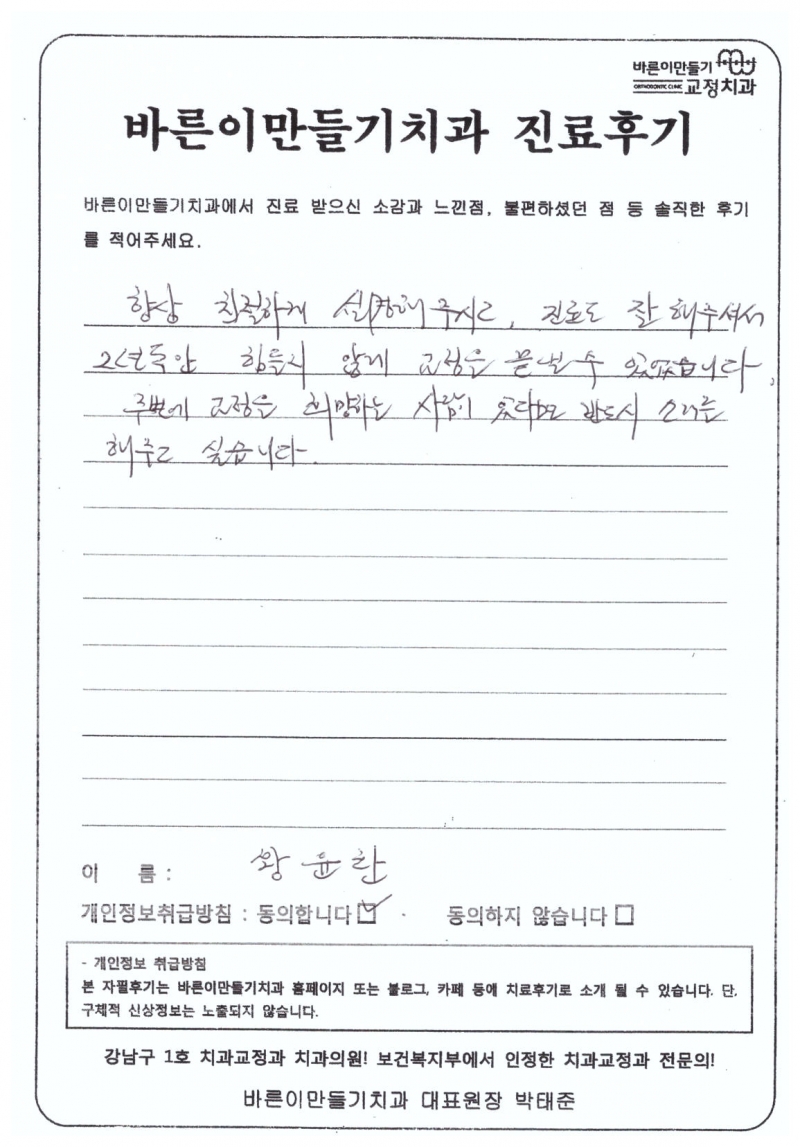 바른이만들기
ORTHODONTIC CLINIC 교정치과
바른이만들기치과 진료후기
바른이만들기치과에서 진료 받으신 소감과 느낀점, 불편하셨던 점 등 솔직한 후기
를 적어주세요.
항상 친절하게 설명해주시고, 진료도 잘 해주셔서
2년동안 힘들지 않게 교정을 끝낼 수 있었습니다.
주변에 교정을 희망하는 사람이 있다면 반드시 소개를
해주고 싶습니다.
이 름 : 왕윤찬
개인정보취급방침 : 동의합니다 동의하지 않습니다
- 개인정보 취급방침
본 자필후기는 바른이만들기치과 홈페이지 또는 블로그, 카페 등에 치료후기로 소개 될 수 있습니다. 단,
구체적 신상정보는 노출되지 않습니다.
강남구 1호 치과교정과 치과의원! 보건복지부에서 인정한 치과교정과 전문의!
바른이만들기치과 대표원장 박태준